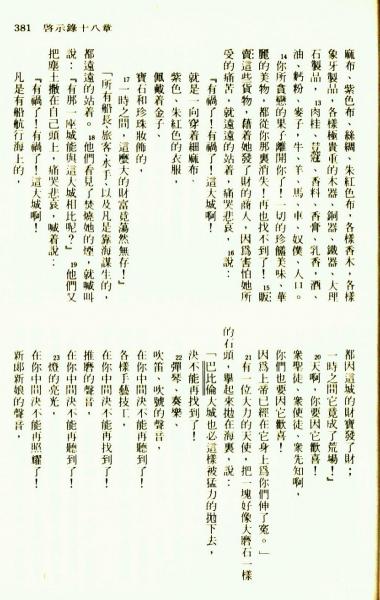 381 啓示錄十八章
麻布、紫色布、絲綢、朱紅色布，各樣香木，各樣
象牙製品，各樣極貴重的木器、銅器、鐵器、大理
石製品，13肉桂、荳蔻、香料、香膏、乳香、酒、
油、麪粉、麥子、牛、羊、馬、車、奴僕、人口。
14你所貪戀的果子離開你了！一切的珍饈美味、華
麗的美物，都從你那裏消失，再也找不到了！15販
賣這些貨物，藉着她發了財的商人，因爲害怕她所
受的痛苦，就遠遠的站着，痛哭悲哀，16說：
『有禍了！有禍了！這大城啊！
就是一向穿着細麻布、
紫色、朱紅色的衣服，
佩戴着金子、
寶石和珍珠妝飾的，
17一時之間，這麼大的財富竟蕩然無存！』
『所有船長、旅客、水手、以及凡是靠海謀生的，
都遠遠的站着。18他們看見了焚燒她的煙，就喊叫
說：『有那一座城能與這大城相比呢？』19他們又
把塵土撒在自己頭上，痛哭悲哀，喊着說：
『有禍了！有禍了！這大城啊！
凡是有船航行海上的，
都因這城的財寶發了財；
一時之間它竟成了荒場！』
20天啊，你要因它歡喜！
衆聖徒、衆使徒、衆先知啊，
你們也要因它歡喜！
因爲上帝已經在它身上爲你們伸了寃。」
21有一位大力的天使，把一塊好像大磨石一樣
的石頭，舉起來拋在海裏，說：
「巴比倫大城也必這樣被猛力的拋下去，
決不能再找到了！
22彈琴、奏樂、
吹笛、吹號的聲音，
在你中間決不能再聽到了！
各樣手藝技工，
在你中間決不能再找到了！
推磨的聲音，
在你中間決不能再聽到了！
23燈的亮光，
在你中間決不能再照耀了！
新郎新娘的聲音，